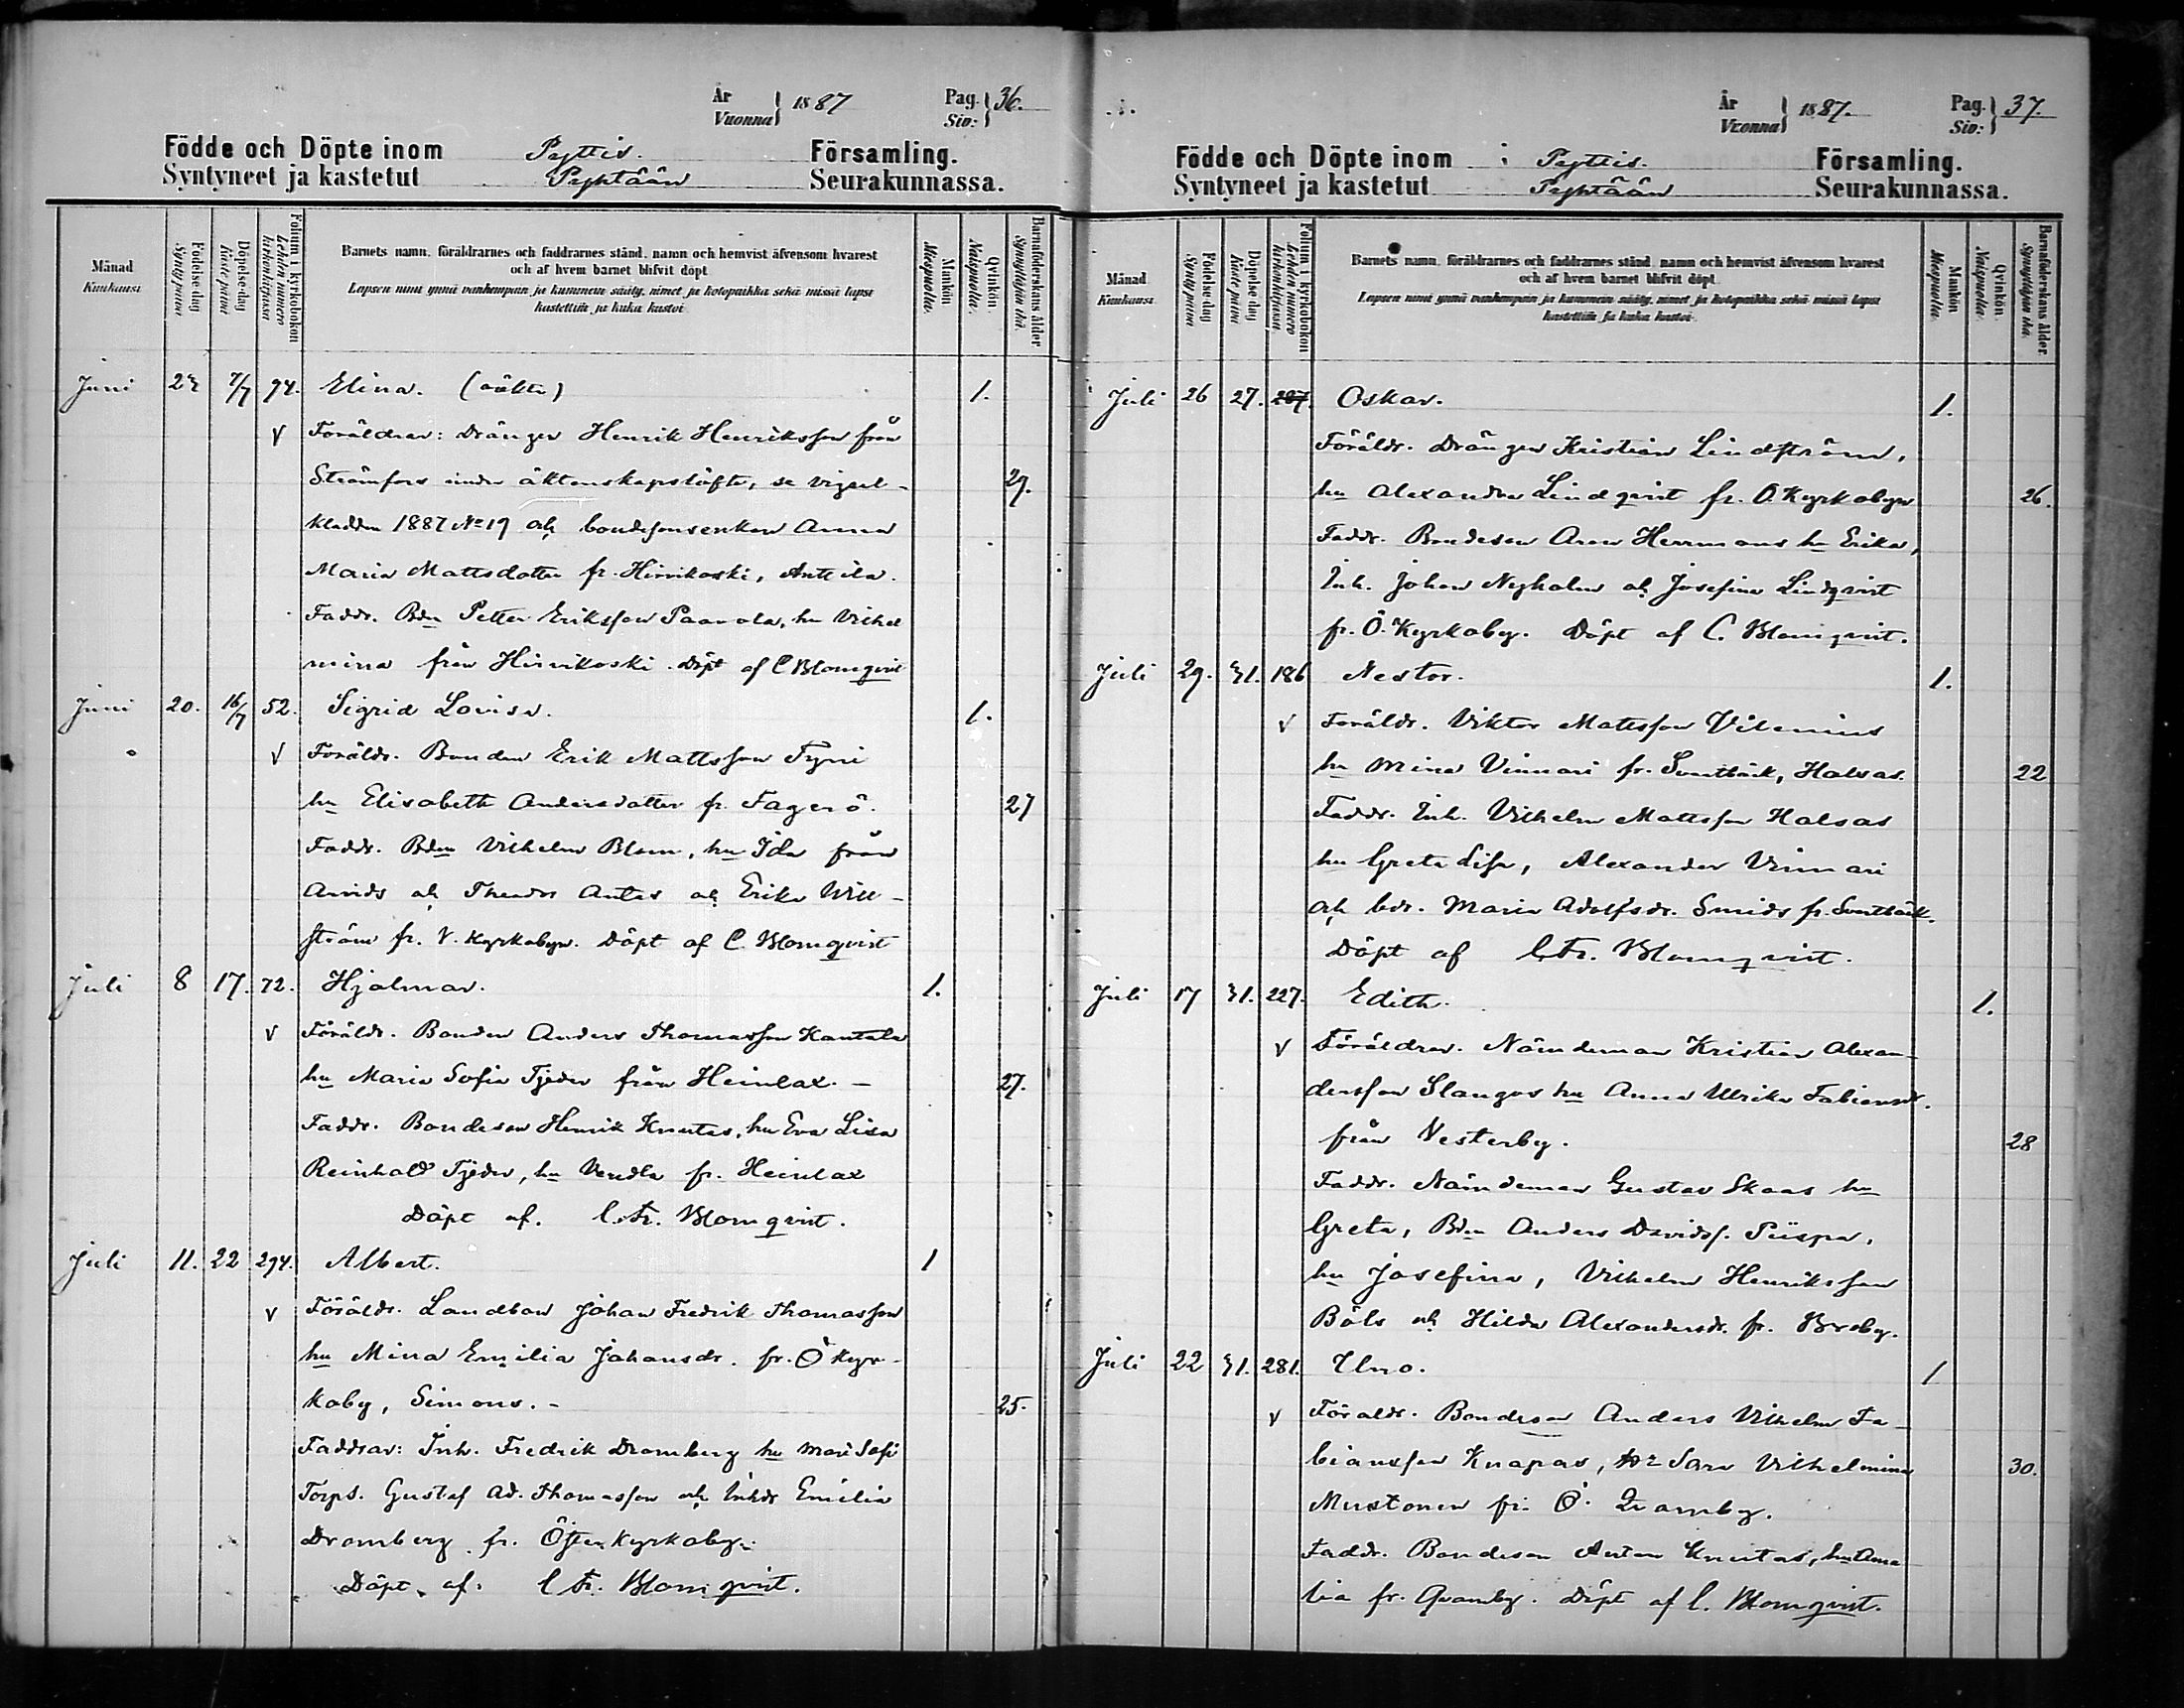 År
Vuonna } 1887
Pag.
Siv: } 36.
Födde och Döpte inom Pyttis. Församling.
Syntyneet ja kastetut Pyhtään Seurakunnassa.
Månad
Kuukausi
Födelse-dag
Syntypäivä
Döpelse-dag
Kastepäivä
Folium i kyrkobokon
Lehden numero kirkonkirjassa
Barnets namn, föräldrarnes och faddrarnes stånd, namn och hemvist äfvensom hvarest
och af hvem barnet blifvit döpt
Lapsen nimi ynnä vanhempain ja kummein sääty, nimet ja kotopaikka sekä missä lapsi
kastettiin ja kuka kastoi
Mankön
Miespuolia.
Qvinkön.
Naispuolia.
Barnaföderskans ålder
Synnyttäjän ikä.
Juni 7/7 94. Elina. (oäkta) 1.
Föräldrar: Drängen Henrik Henriksson från
Strömfors under äktenskapslöfte, se vigsel- 29.
kladden 1887 No 19 och bondesonsenkan Anna
Maria Mattsdotter fr. Hirvikoski, Anttila.
Faddr. Bdn Petter Eriksson Paavola, hu Vilhel
mina från Hirvikoski. Döpt af C Blomqvist
Juni 20. 16/7 52. Sigrid Lovisa. 1.
Föräldr. Bonden Erik Mattsson Tyni
hu Elisabeth Andersdotter fr. Fagerö. 27
Faddr. Bdn Vilhelm Blom, hu Ida från
Arvids och Theodor Antas och Erika Wik-
ström fr. V. Kyrkobyn. Döpt af C. Blomqvist
Juli 8 17. 72. Hjalmar. 1.
Föräldr. Bonden Anders Thomasson Kantala
hu Maria Sofia Tjeder från Heinlax. - 27.
Faddr. Bondeson Henrik Knutas, hu Eva Lisa
Reinhold Tjeder, hu Vendla fr. Heinlax
Döpt af. C. Fr. Blomqvist.
Juli 11. 22 294. Albert. 1
Föräldr. Landbon Johan Fredrik Thomasson
hu Mina Emilia Johansdr. fr. Ö Kyr-
koby, Simons. - 25.
Faddrar: Inh. Fredrik Dromberg hu Mari Sofi
Torps. Gustaf Ad. Thomasson och Inhdr Emilia
Dromberg fr. Öster Kyrkoby.
Döpt af. C Fr. Blomqvist.
År
Vuonna } 1887.
Pag.
Siv: } 37.
Födde och Döpte inom i Pyttis. Församling.
Syntyneet ja kastetut Pyhtään Seurakunnassa.
Månad
Kuukausi
Födelse-dag
Syntypäivä
Döpelse-dag
Kastepäivä
Folium i kyrkobokon
Lehden numero kirkonkirjassa
Barnets namn, föräldrarnes och faddrarnes stånd, namn och hemvist äfvensom hvarest
och af hvem barnet blifvit döpt.
Lapsen nimi ynnä vanhempain ja kummein sääty, nimet ja kotopaikka sekä missä lapsi
kastettiin ja kuka kastoi.
Mankön
Miespuolia.
Qvinkön.
Naispuolia.
Barnaföderskans ålder.
Synnyttäjän ikä.
Juli 26 27. 287. Oskar. 1.
Föräldr. Drängen Kristian Lindström,
hu Alexandra Lindqvist fr. Ö. Kyrkobyn 26.
Faddr. Bondeson Aron Hermans hu Erika,
Inh. Johan Nyholm och Josefina Lindqvist
fr. Ö. Kyrkoby. Döpt af C. Blomqvist.
Juli 29. 31. 186 Nestor. 1.
Föräldr. Viktor Mattsson Vilenius
hu Mina Vinnari fr. Svartbäck, Halsas. 22
Faddr. Inh. Vilhelm Mattsson Halsas
hu Greta Lisa, Alexander Vinnari
och bdr. Maria Adolfsdr. Smids fr. Svartbäck.
Döpt af C. Fr. Blomqvist.
Juli 17 31. 227. Edith. 1.
Föräldrar. Nämdeman Kristian Alexan-
dersson Slangus hu Anna Ulrika Fabiansdr.
från Vesterby. 28
Faddr. Nämdeman Gustav Skaas hu
Greta, Bdn Anders Davidss. Piispa,
hu Josefina, Vilhelm Henriksson
Böls och Hilda Alexandersdr. fr. Broby.
Juli 22 31. 281. Uno. 1
Föräldr. Bondeson Anders Vilhelm Fa-
biansson Knapas, hu Sara Vilhelmina 30.
Mustonen fr. Ö. Qvarnby.
Faddr. Bondeson Anton Knutas, hu Ama
lia fr. Qvarnby. Döpt af C. Blomqvist.